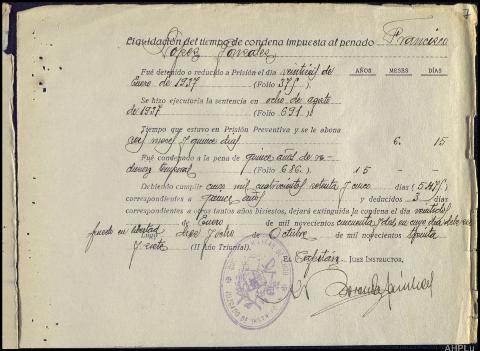 Liquidación del tiempo de condena impuesta al penado Francisco
López González
Fué detenido o reducido a Prisión el día veintitres de AÑOS MESES DÍAS
Enero de 1937 (Folio 375).
Se hizo ejecutoria la sentencia en ocho de agosto
de 1937 (Folio 691).
Tiempo que estuvo en Prisión Preventiva y se le abona
seis meses y quince días 6. 15
Fué condenado a la pena de quince años de re-
clusion temporal (Folio 686.) 15 -
Debiendo cumplir cinco mil cuatrocientos setenta y cinco días (5475)
correspondientes a quince años y deducidos 3 días
correspondientes a otros tantos años bisiestos, dejará extinguida la condena el día
de Enero de mil novecientos cincuenta y dos en cuyo día debe ser
puesto en libertad
Lugo, diez y ocho de Octubre de mil novecientos treinta
y siete (II Año Triunfal).
EL Capitán JUEZ INSTRUCTOR,
AHPLu